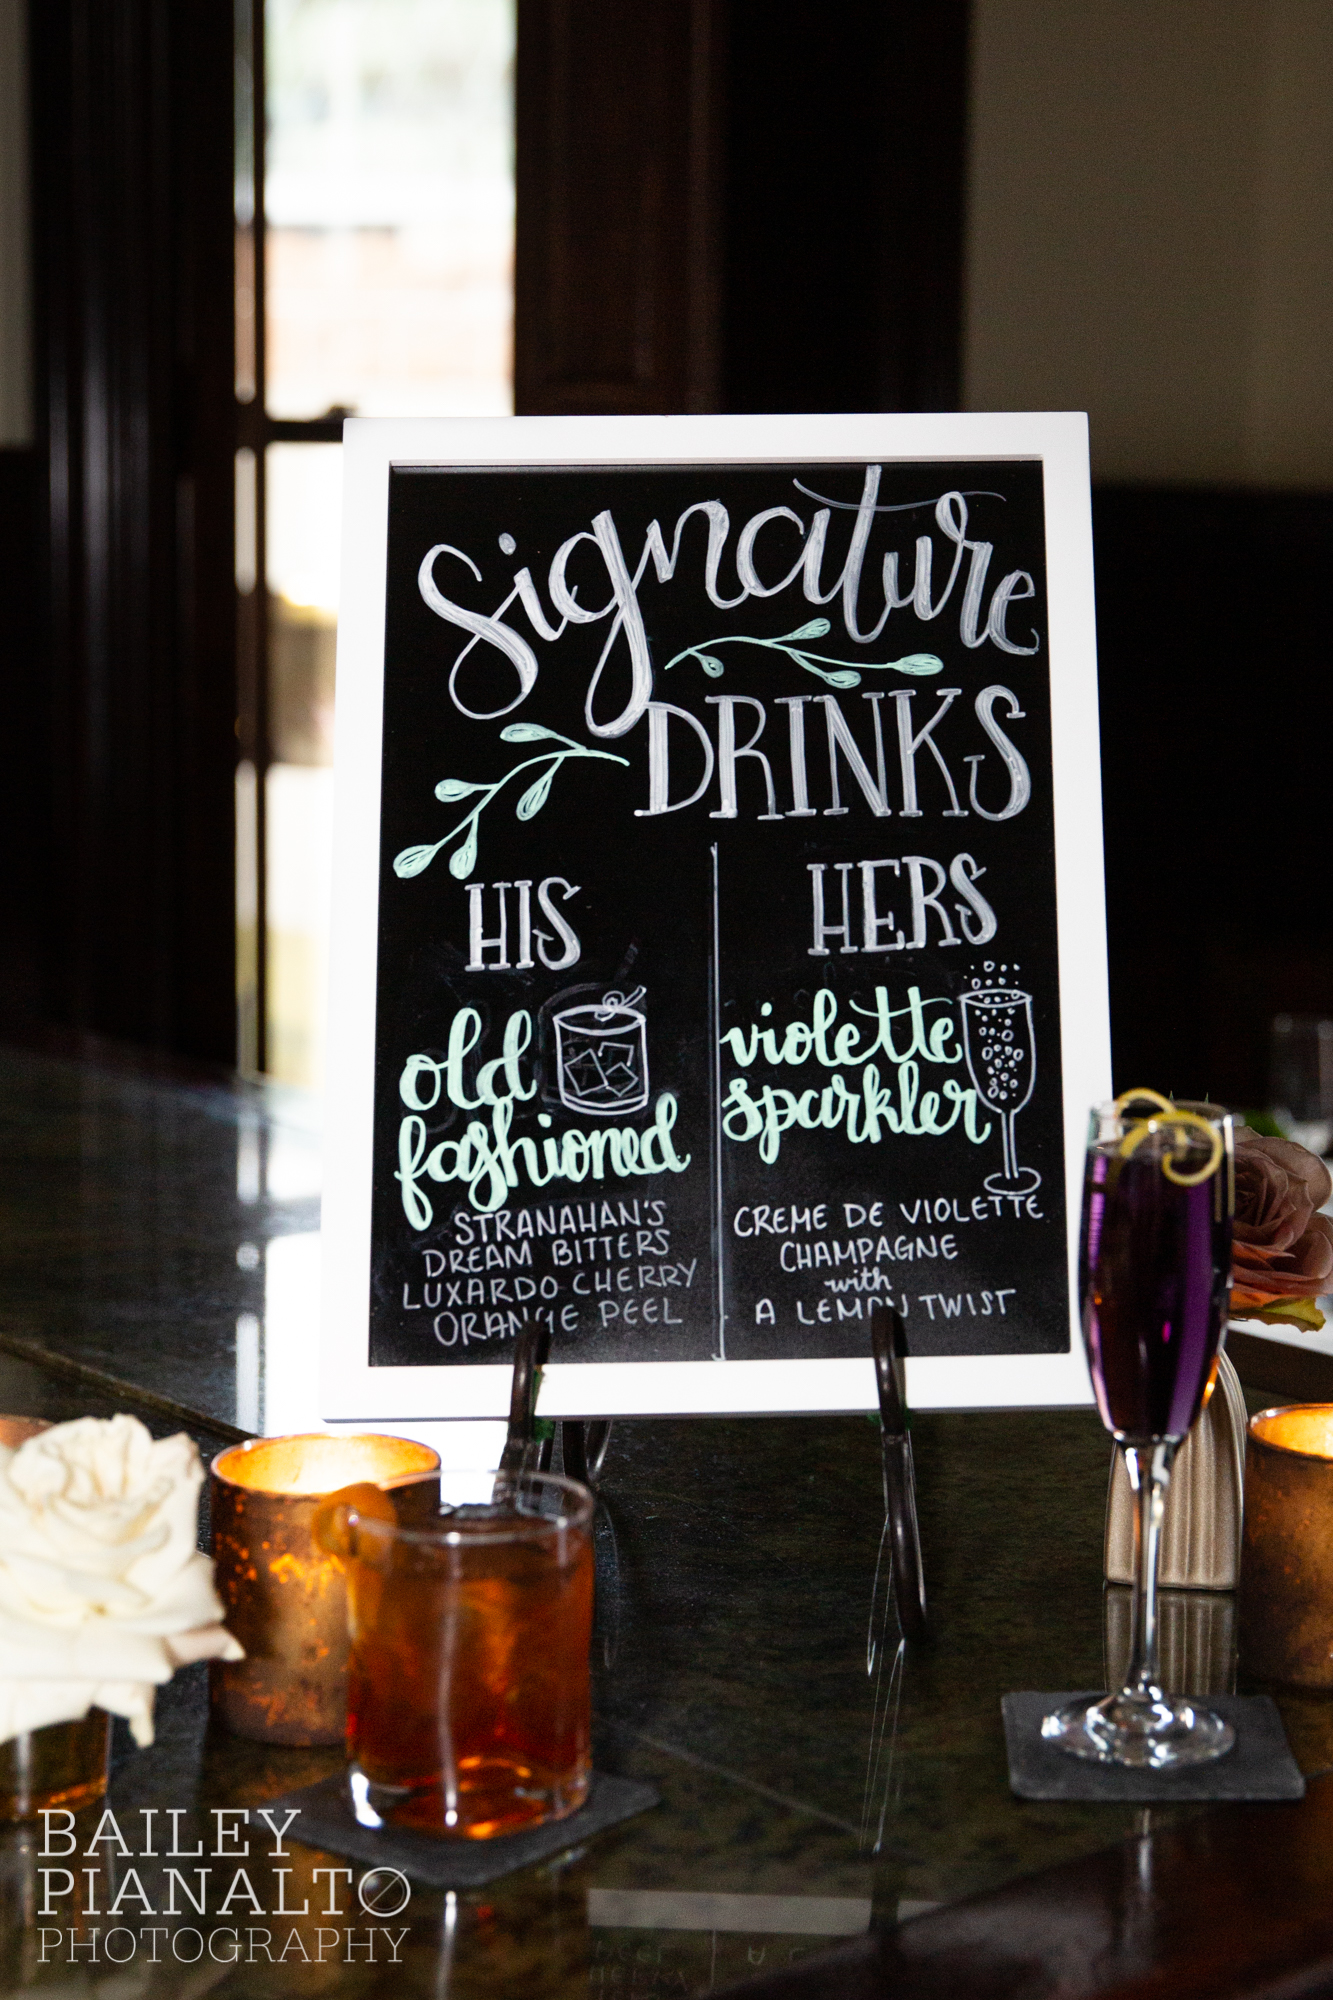 Signature
DRINKS
HIS
old
fashioned
STRANAHAN'S
DREAM BITTERS
LUXARDO CHERRY
ORANGE PEEL
HERS
violette
sparkler
CREME DE VIOLETTE
CHAMPAGNE
with
A LEMON TWIST
BAILEY
PIANALTO
PHOTOGRAPHY